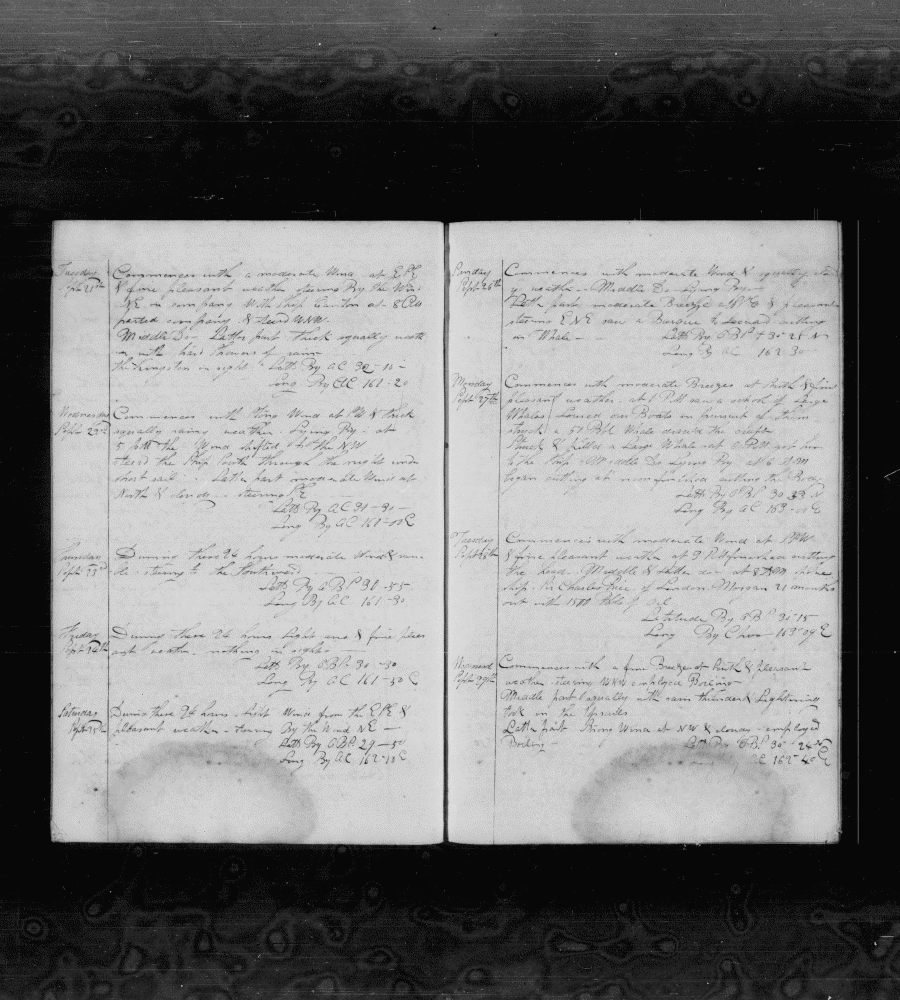 Tuesday
Sept 21th
Commences with a moderate Wind at
& fine pleasant weather steering By the Wind
NE in company With Ship at 8
parted company & steerd WNW.
Middle Do - Latter part thick squally weath
er with hard of rain
the Kingston in sight Latt By AC 30-10-
Long By AC 161-20
Wednesday
Sept 22d
Commences with strong Wind at SW & thick
squally rainy weather. Lying By - at
5 the Wind shifted to the NW
steerd the Ship South through the night under
short sail - Latter part moderate Wind at
North & clouds - steering SE
Latt By AC 31-30-
Long By AC 161-00 E
Sept 23d
During these 24 hours moderate Wind &
steering to the Southward
Latt By OBs 31-55
Long By AC 161-30
Friday
Sept 24th
During these 24 hours light airs & fine pleas
ant weather. nothing in sight
Latt By OBs 30-30
Long By AC 161-50 E
Saturday
Sept 25
During these 24 hours light Winds from the &
pleasant weather - steering By the Wind NE -
Latt By OBs 29-50
Long By AC 162-10 E
Sunday
Sept 26th
Commences with moderate Wind & squally
weather - Middle Do - Lying By -
Latter part moderate Breeze & pleasant
steering ENE saw a Barque to leeward cutting
in Whale - Latt By OBs 30 25 N
Long By AC 162 30
Monday
Sept 27th
Commences with moderate Breezes at South & fine
pleasant weather - at 1 PM saw a school of Large
Whales Lowered our Boats in pursuit of them
struck a 50 Bbl Whale
Struck & killed a Large Whale at 6 PM got him
to the ship - Middle Do Lying By at 6 AM
began cutting at noon finished cutting the
Latt By OBs 30 33 N
Long By AC 163-00 E
Tuesday
Sept 28th
Commences with moderate Wind at
& fine pleasant weather at 9 PM finished cutting
the head. Middle & latter do. at 8 AM
ship Sir Charles Price of London 21 months
out with 1500 Bbls of Oil
Latitude By OBs 30-15
Long By 163-09 E
Sept 29th
Commences with a fine Breeze at South & pleasant
weather - steering WNW employed Boiling
Middle part squally with rain thunder & Lightning
took in the
Latter part Strong Wind at NW & clouds - employed
Boiling - Latt By OBs 30 24 N
AC 162-40 E